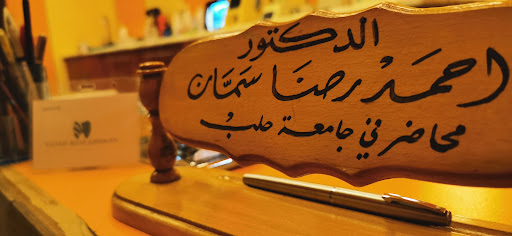 الدكتور
احمد رضا سمّان
محاضر في جامعة حلب